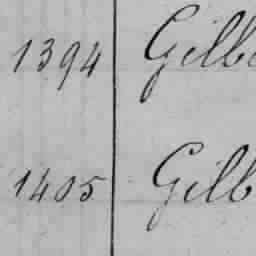 1394 Gilb
1405 Gilb